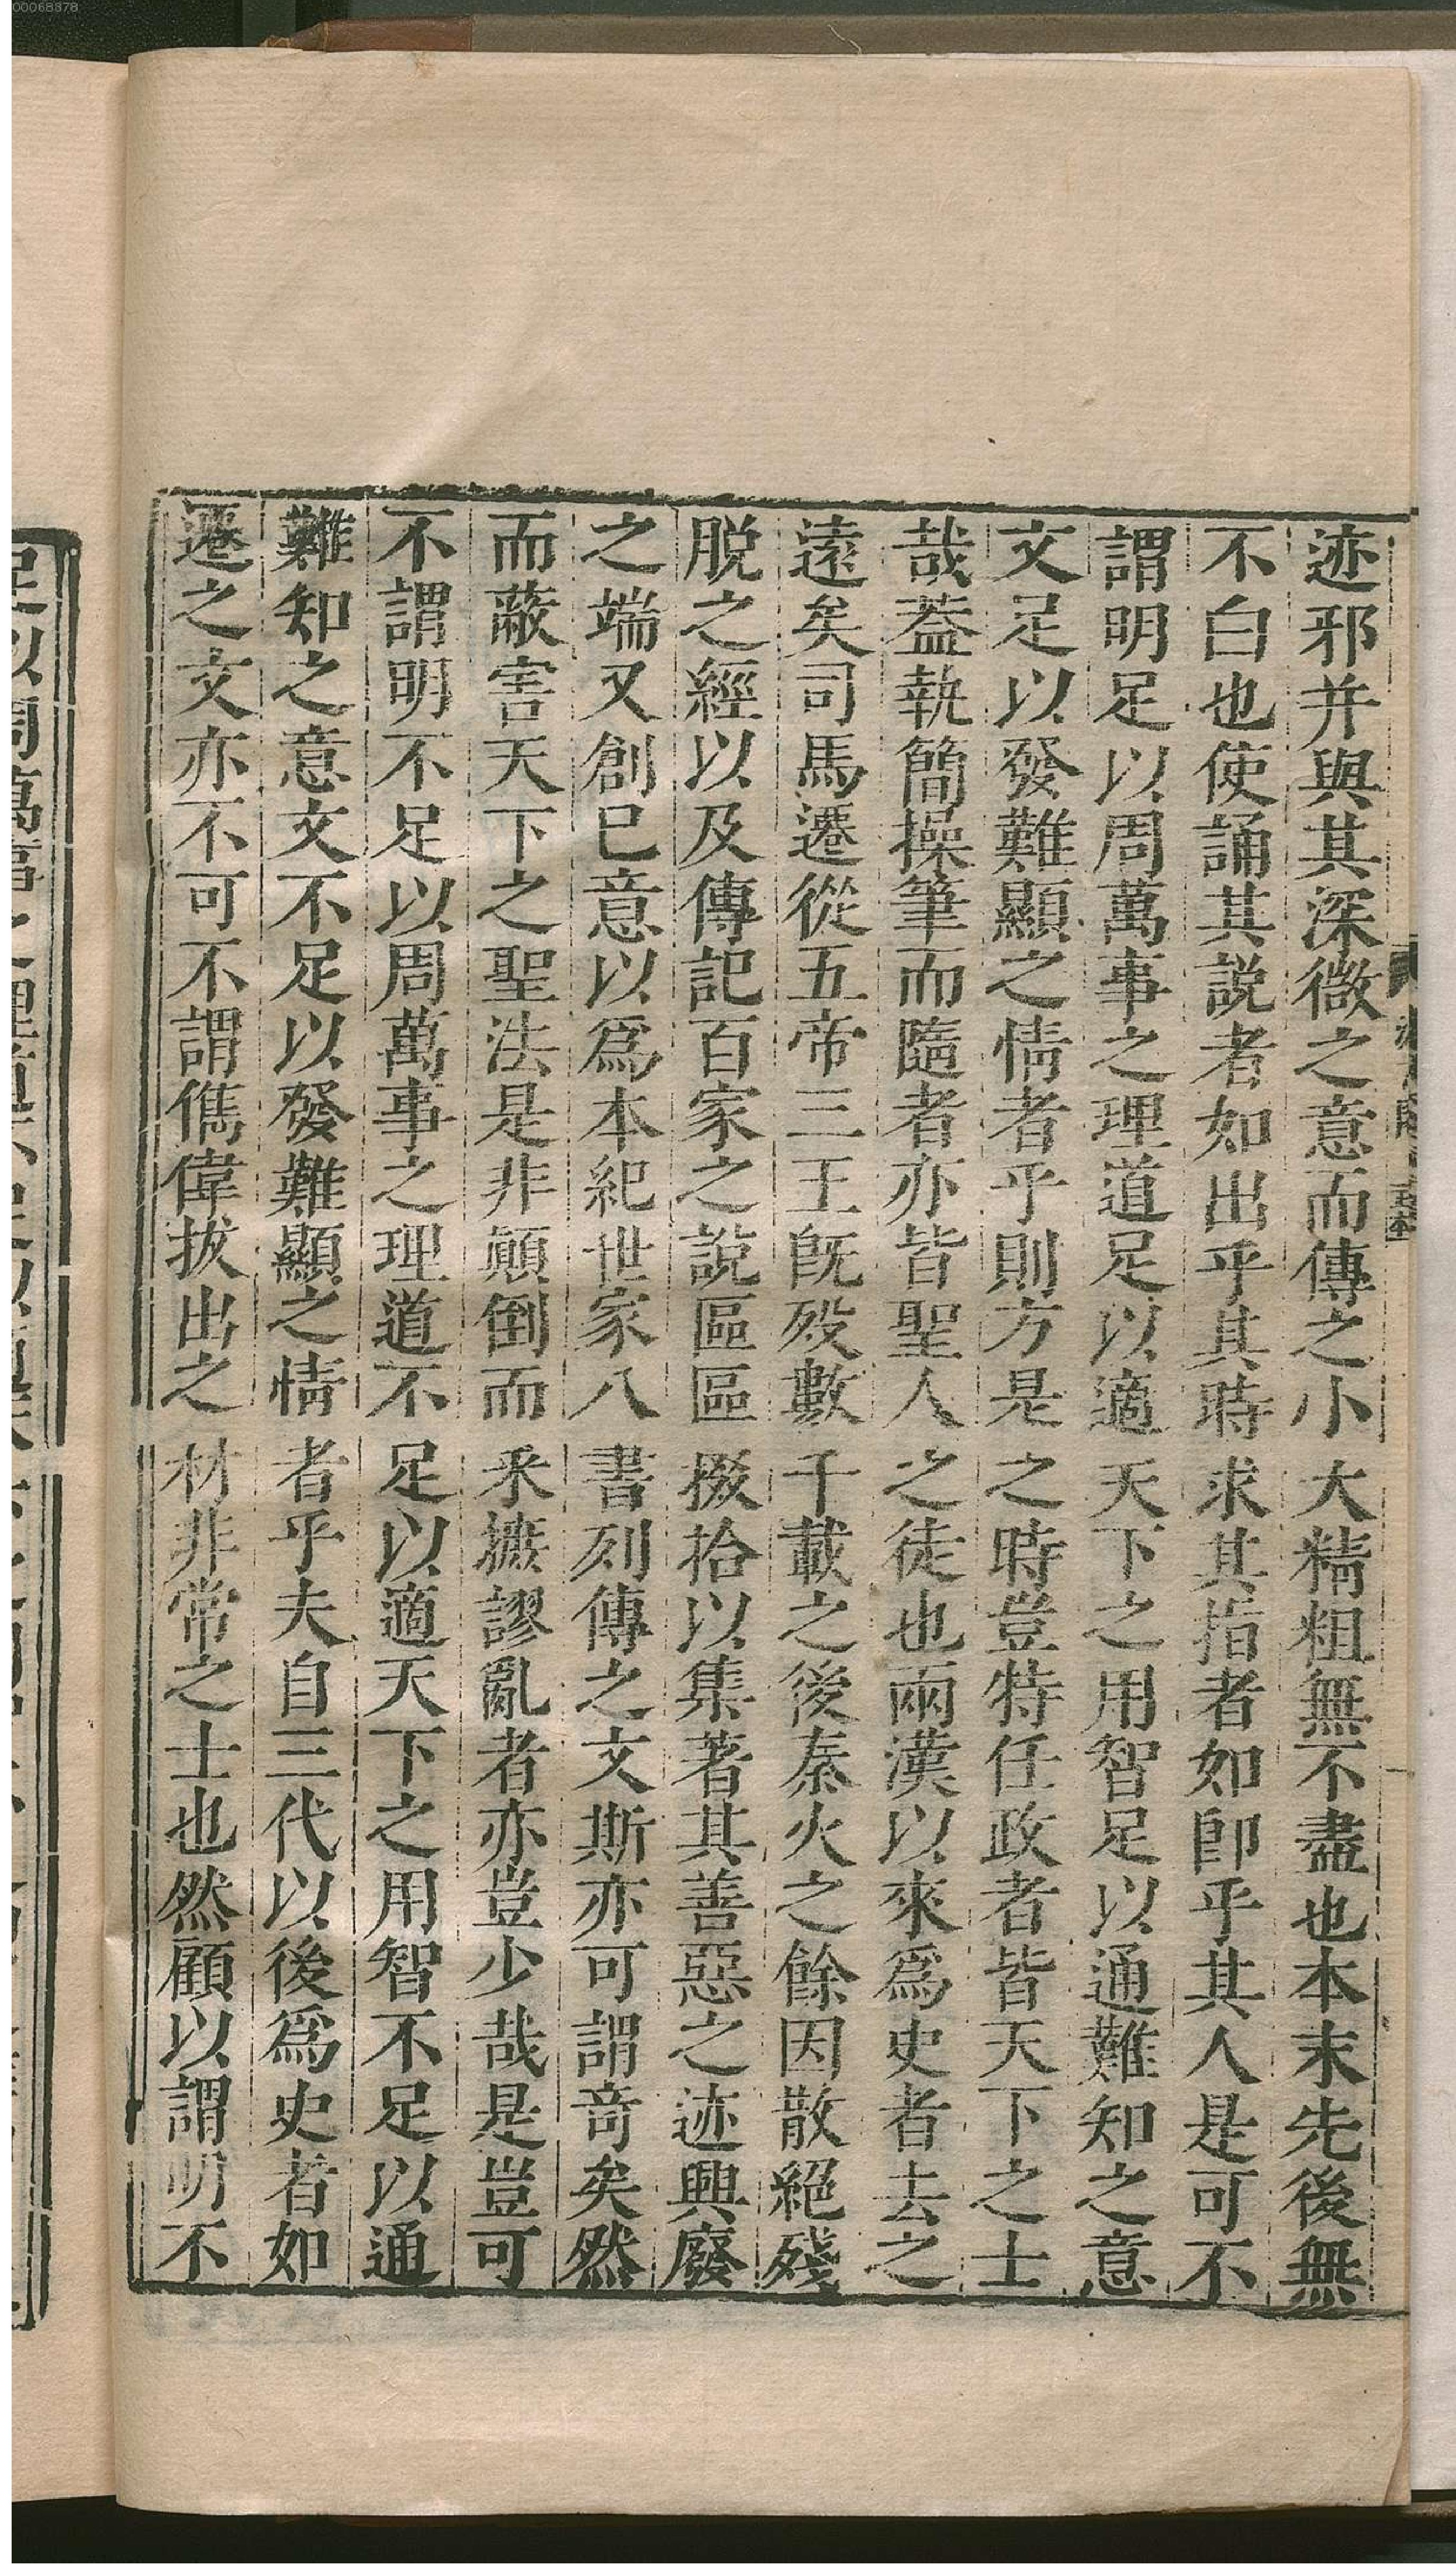 00068378
迹邪并與其深微之意而傳之小大精粗無不盡也本末先後無
不白也使誦其說者如出乎其時求其指者如卽乎其人是可不
謂明足以周萬事之理道足以適天下之用智足以通難知之意
文足以發難顯之情者乎則方是之時豈特任政者皆天下之士
哉葢執簡操筆而隨者亦皆聖人之徒也兩漢以來爲史者去之
遠矣司馬遷從五帝三王旣歿數千載之後秦火之餘因散絕殘
脫之經以及傳記百家之說區區掇拾以集著其善惡之迹興廢
之端又創已意以爲本紀世家八書列傳之文斯亦可謂竒矣然
而蔽害天下之聖法是非顛倒而釆摭謬亂者亦豈少哉是豈可
不謂明不足以周萬事之理道不足以適天下之用智不足以通
難知之意文不足以發難顯之情者乎夫自三代以後爲史者如
遷之文亦不可不謂儁偉拔出之材非常之士也然顧以謂明不